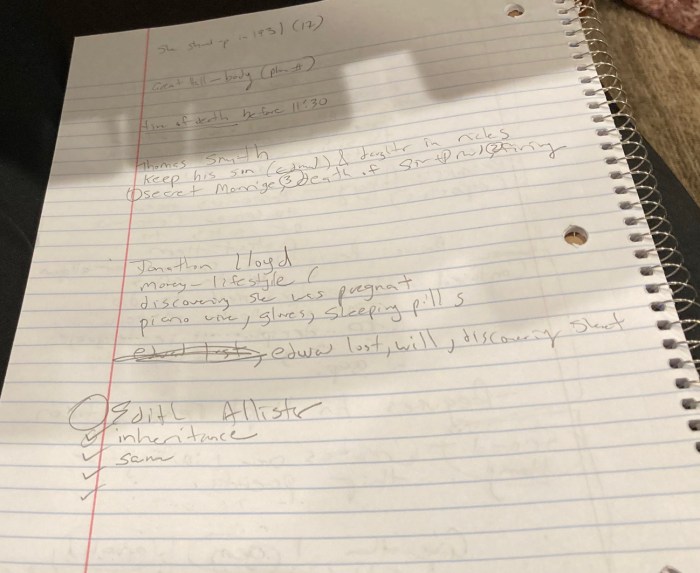 in 1931 (17)
Great hall - body
time of death before 11:30
Thomas Smith
Keep his son & daughter in
① secret Marrige, ③ death of ② firing
Jonathon Lloyd
money - lifestyle (
discovering she was pregnant
piano wire, gloves, sleeping pills
lost, will, discovering
Edith Allister
✓ inheritance
✓ same
✓
✓